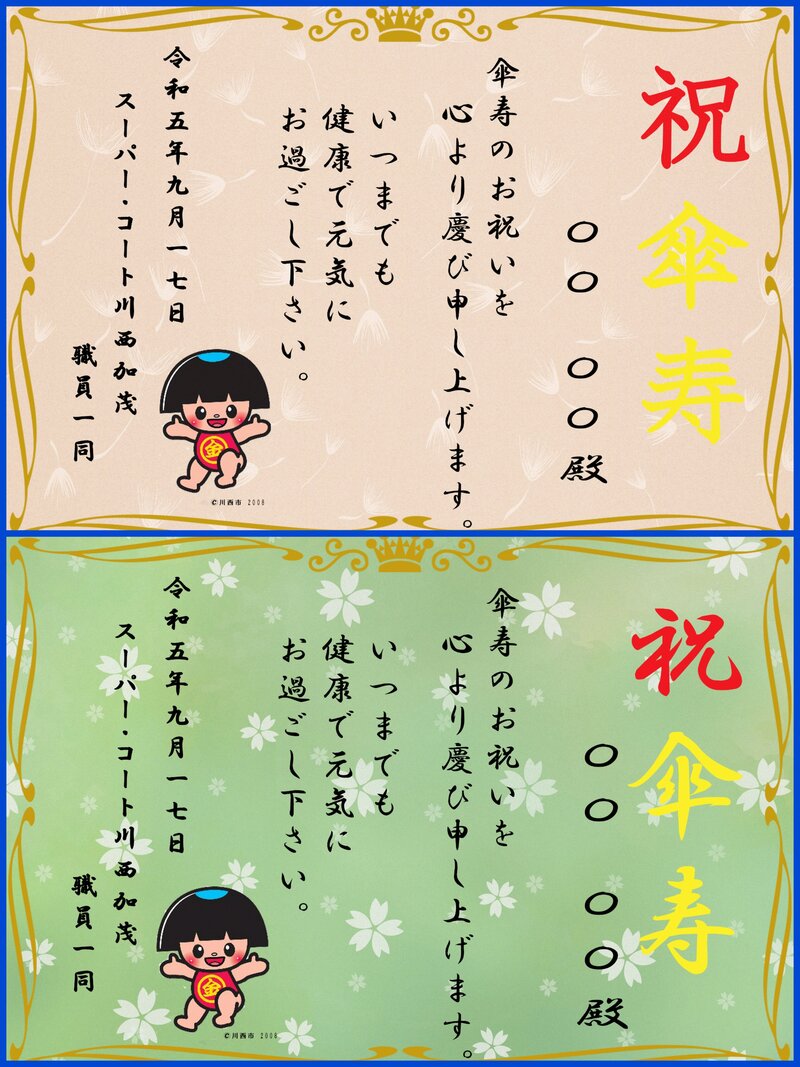 祝 傘寿
〇〇 〇〇殿
傘寿のお祝いを
心より慶び申し上げます。
いつまでも
健康で元気に
お過ごし下さい。
令和五年九月一七日
スーパー・コート川西加茂
職員一同
金
©川西市 2008
祝 傘寿
〇〇 〇〇殿
傘寿のお祝いを
心より慶び申し上げます。
いつまでも
健康で元気に
お過ごし下さい。
令和五年九月一七日
スーパー・コート川西加茂
職員一同
金
©川西市 2008